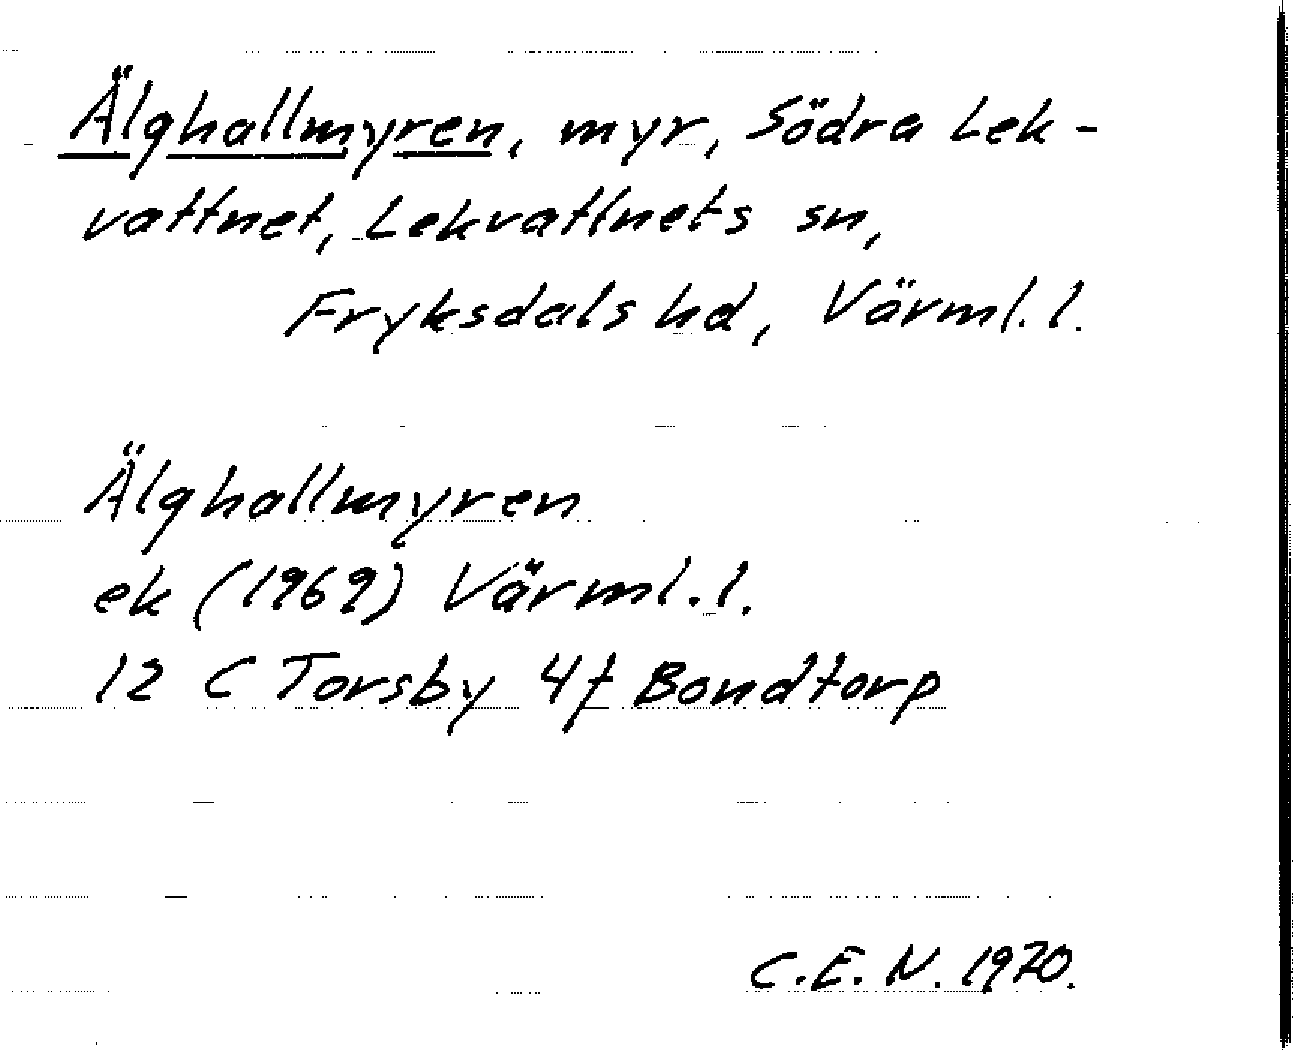 Älghallmyren, myr, Södra Lek-
vattnet, Lekvattnets sn,
Fryksdals hd, Värml. l.
Älghallmyren
ek (1969) Värml. l.
12 C Torsby 4f Bondtorp
C. E. N. 1970.